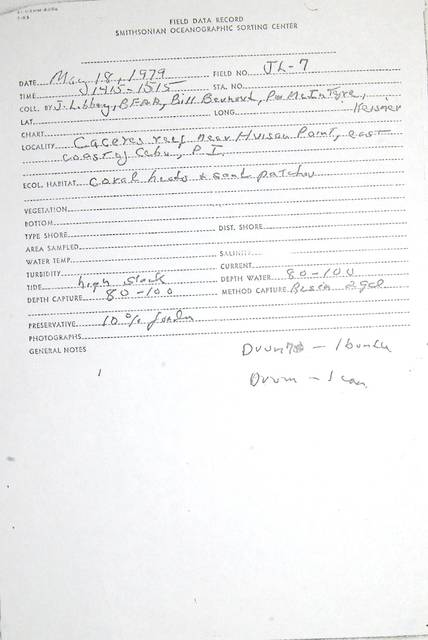 FIELD DATA RECORD
SMITHSONIAN OCEANOGRAPHIC SORTING CENTER
DATE May 18, 1979 FIELD NO. JL-7
TIME 1415-1515 STA. NO.
COLL. BY J. Libbey, BFAR, Bill
LAT. LONG.
CHART
LOCALITY Caceres reef near Point, east
coast of Cebu, P.I.
ECOL. HABITAT coral heads & sand patches
VEGETATION
BOTTOM
TYPE SHORE DIST. SHORE
AREA SAMPLED
WATER TEMP. SALINITY
TURBIDITY CURRENT
TIDE high slack DEPTH WATER 80-100
DEPTH CAPTURE 80-100 METHOD CAPTURE
PRESERVATIVE 10%
PHOTOGRAPHS
GENERAL NOTES
Drum - 1 can